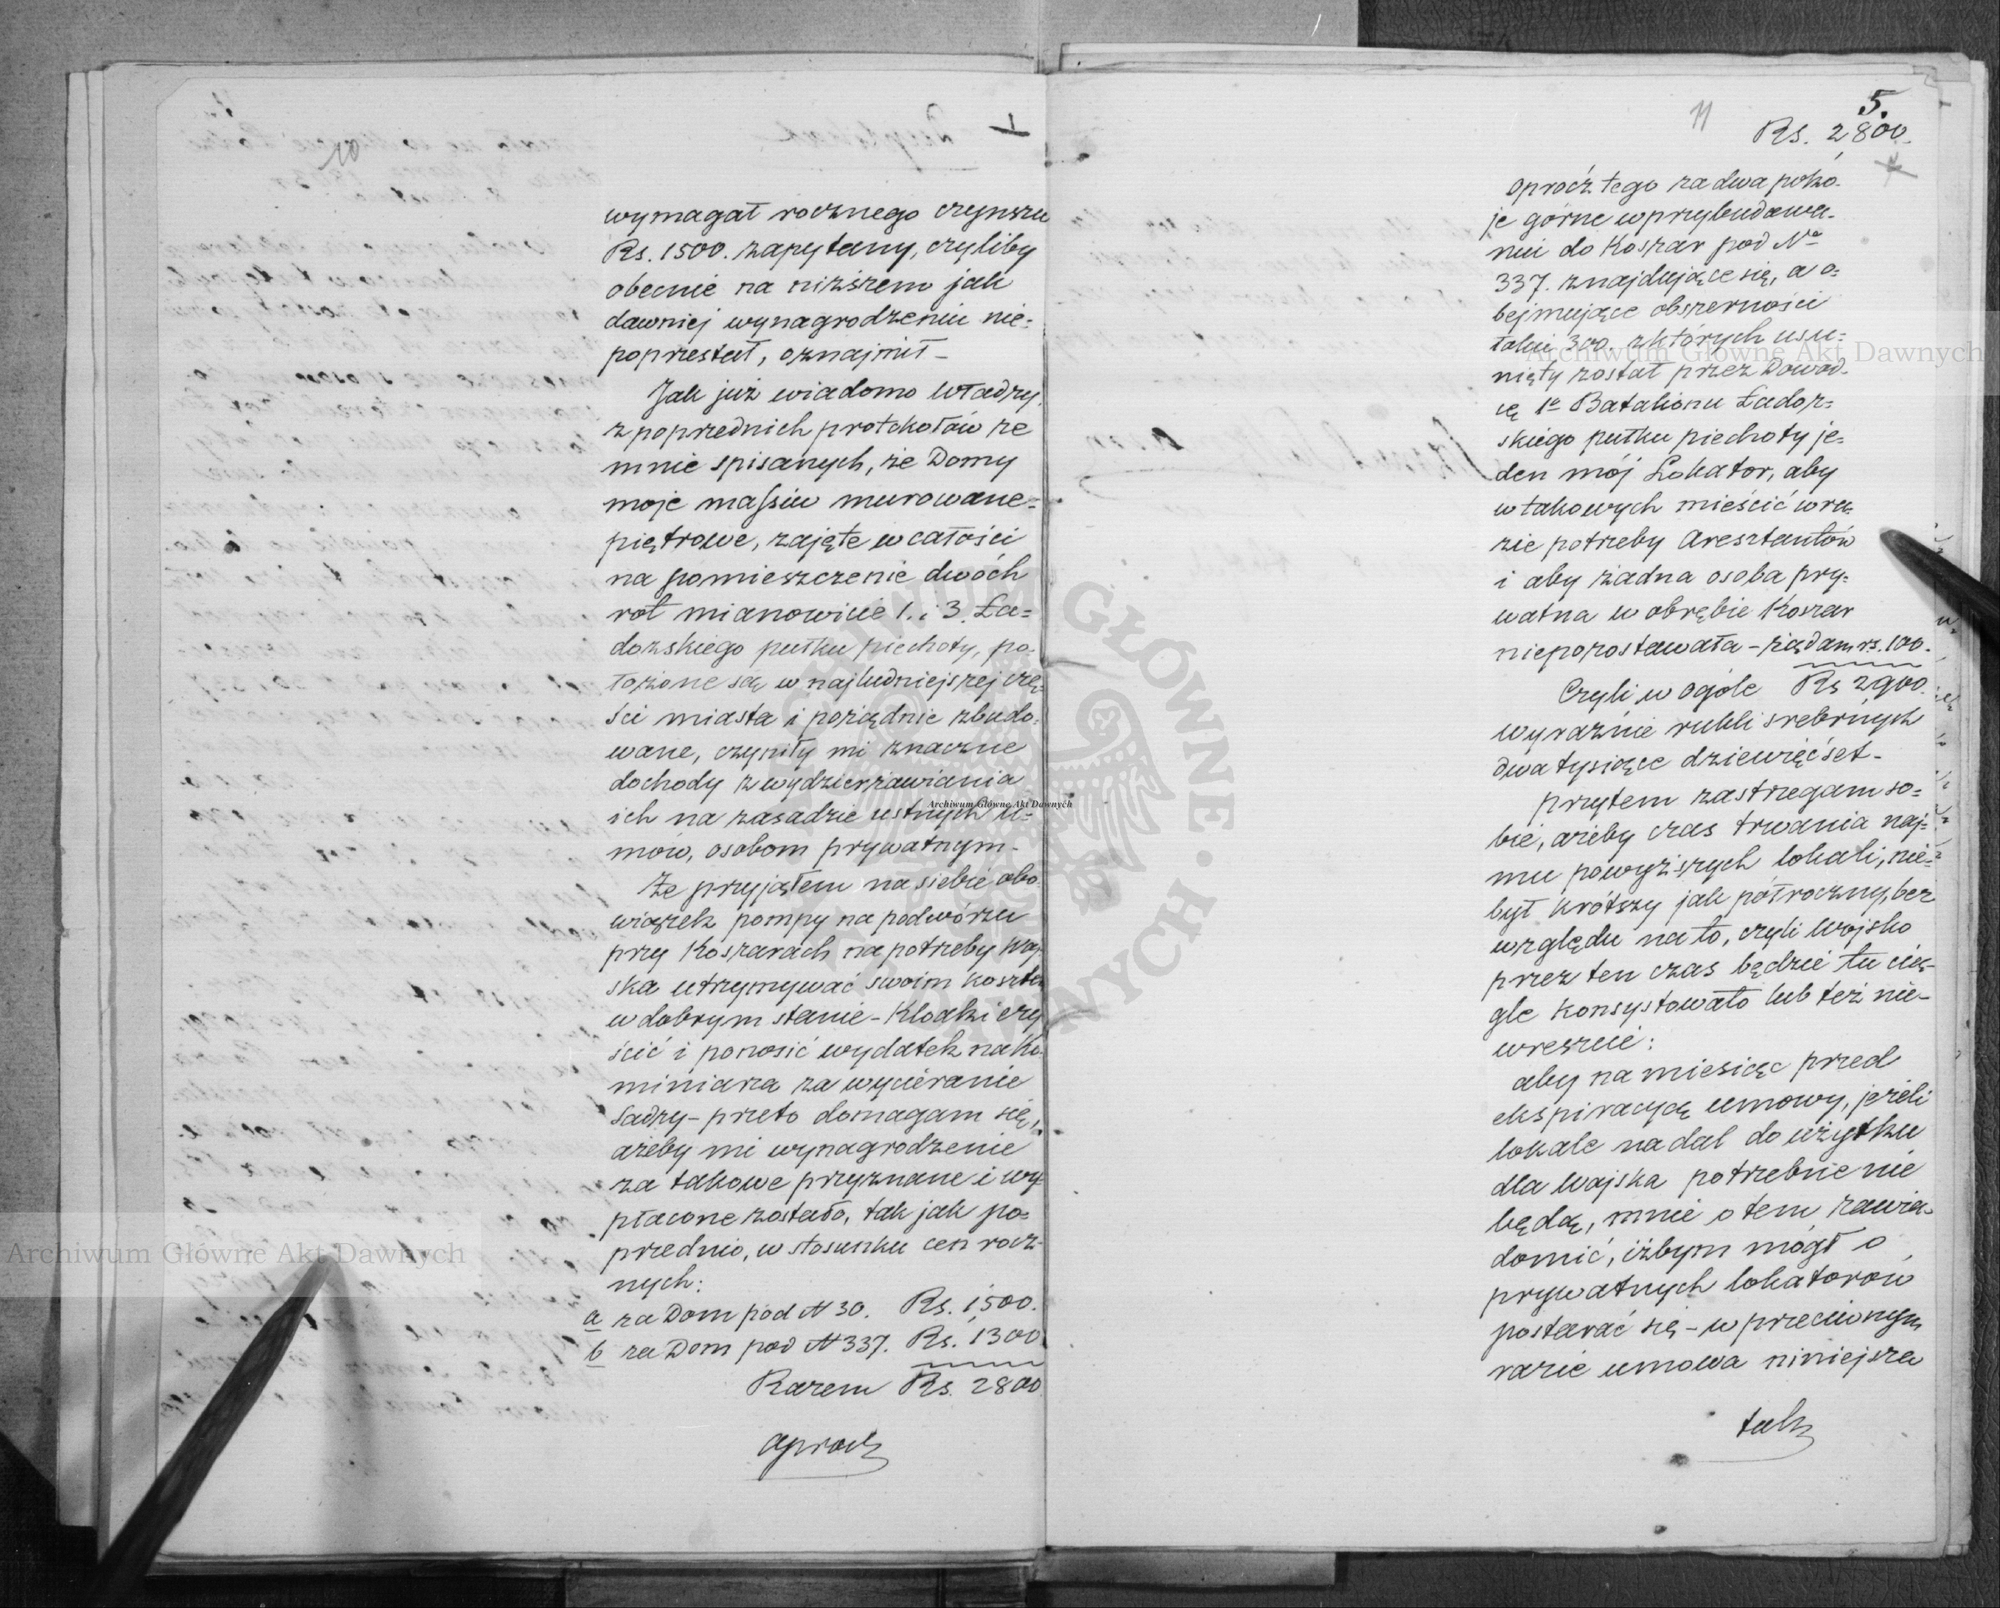 wymagał rocznego czynszu
Rs. 1500. zapytany, czyliby
obecnie na niższem jak
dawniej wynagrodzeniu nie=
poprzestał, oznajmił –
Jak już wiadomo Władzy,
z poprzednich protokołów ze
mnie spisanych, że Domy
moje massiw murowane=
piętrowe, zajęte w całości
na pomieszczenie dwóch
rot mianowicie 1. i 3. Ła=
dozskiego pułku piechoty, po=
łożone są w najludniejszej czę=
ści miasta i porządnie zbudo=
wane, czyniły mi znaczne
dochody z wydzierżawiania
ich na zasadzie ustnych u=
mów, osobom prywatnym –
Że przyjąłem na siebie obo=
wiązek pompy na podwórzu
przy Koszarach na potrzeby Woj=
ska utrzymywać swoim kosztem
w dobrym stanie – Kloaki czy
ścić i ponosić wydatek na Ko=
miniarza za wycieranie
Sadzy – przeto domagam się,
ażeby mi wynagrodzenie
za takowe przyznane i wy=
płacone zostało, tak jak po=
przednio, w stosunku cen rocz=
nych:
a za Dom pod N 30. Rs. 1500.
b za Dom pod N 337. Rs. 1300
Razem Rs. 2800
oprócz
11
5.
Rs. 2800.
oprócz tego za dwa poko=
je górne w przybudowa=
niu do Koszar pod No
337. znajdujące się, a o=
bejmujące obszerności
łokci 300. z których usu=
nięty został przez Dowód=
cę 1o Batalionu Ładoz=
skiego pułku piechoty je=
den mój Lokator, aby
w takowych mieścić w ra=
zie potrzeby Aresztantów
i aby żadna osoba pry=
watna w obrębie Koszar
niepozostawała – żądam rs. 100.
Czyli w ogóle Rs 2900.
wyraźnie rubli srebrnych
dwa tysiące dziewięćset –
przytem zastrzegam so=
bie, ażeby czas trwania naj=
mu powyższych lokali, nie=
był krótszy jak półroczny, bez
względu na to, czyli Wojsko
przez ten czas będzie tu cią=
gle konsystowało lub też nie –
wreszcie:
aby na miesiąc przed
ekspiracyą umowy, jeżeli
lokale nadal do użytku
dla Wojska potrzebne nie
będą, mnie o tem zawia=
domić, iżbym mógł o
prywatnych lokatorów
postarać się – w przeciwnym
razie umowa niniejsza
tak
Archiwum Główne Akt Dawnych
Archiwum Główne Akt Dawnych
Archiwum Główne Akt Dawnych